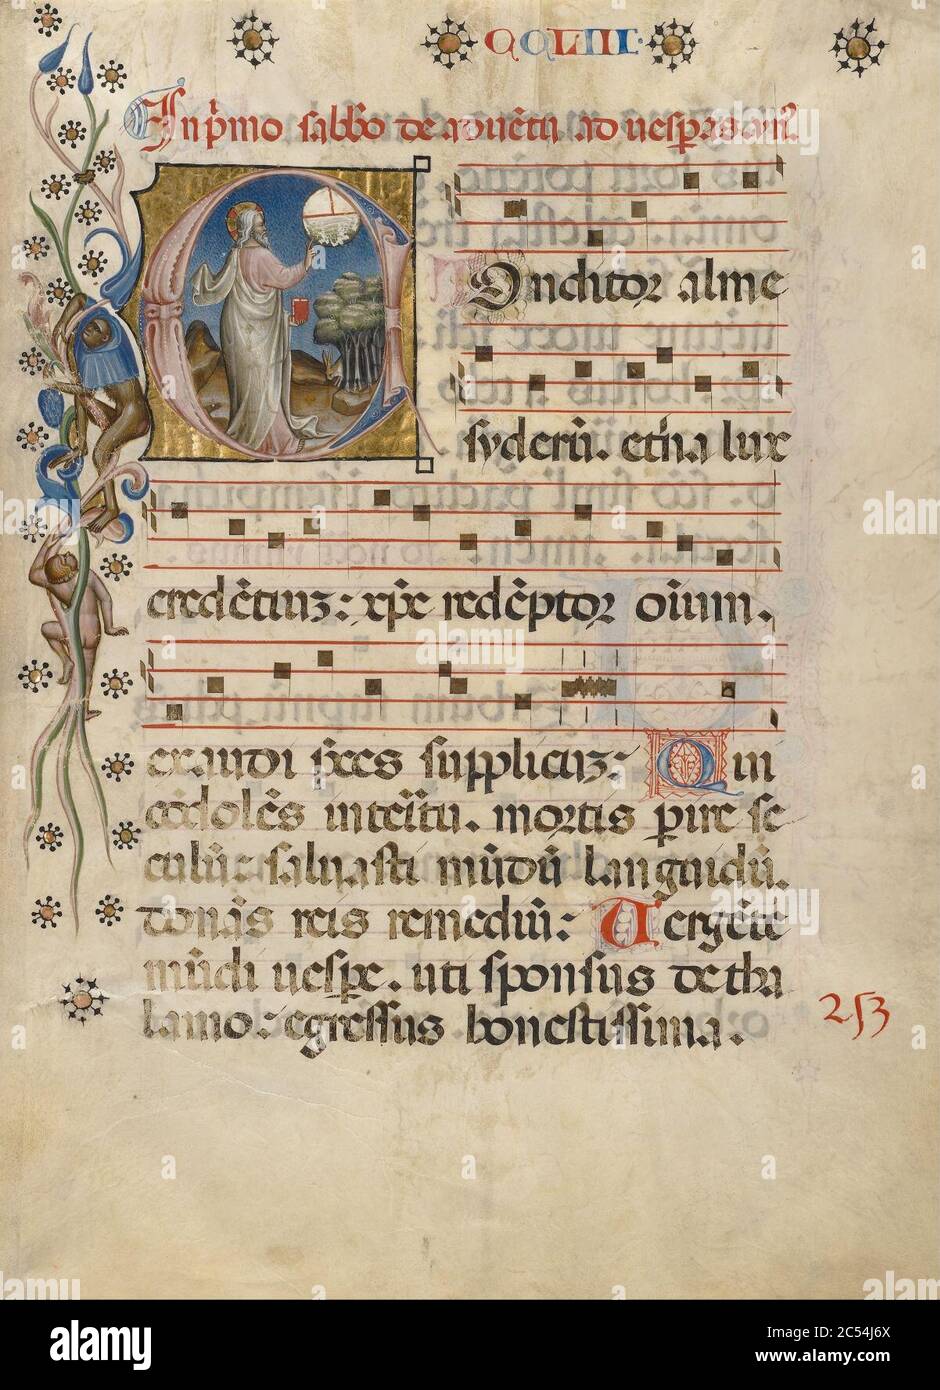 CCLIII.
In pͥmo sabbo de aduētu ad uesperas ẏmꝰ.
Onditor alme
syderū. etͥna lux
credētiuʒ: xp̄e redēptor oīum.
exaudi p̄ces supplicuʒ: Qui
cōdolēs interitu. mortis ꝑire se
culū: saluasti mūdū languidū.
donās reis remediū: Uergēte
mūdi uesꝑe. uti sponsus de tha
lamo: egressus honestissima.
253
alamy
Image ID: 2C54J6X
www.alamy.com